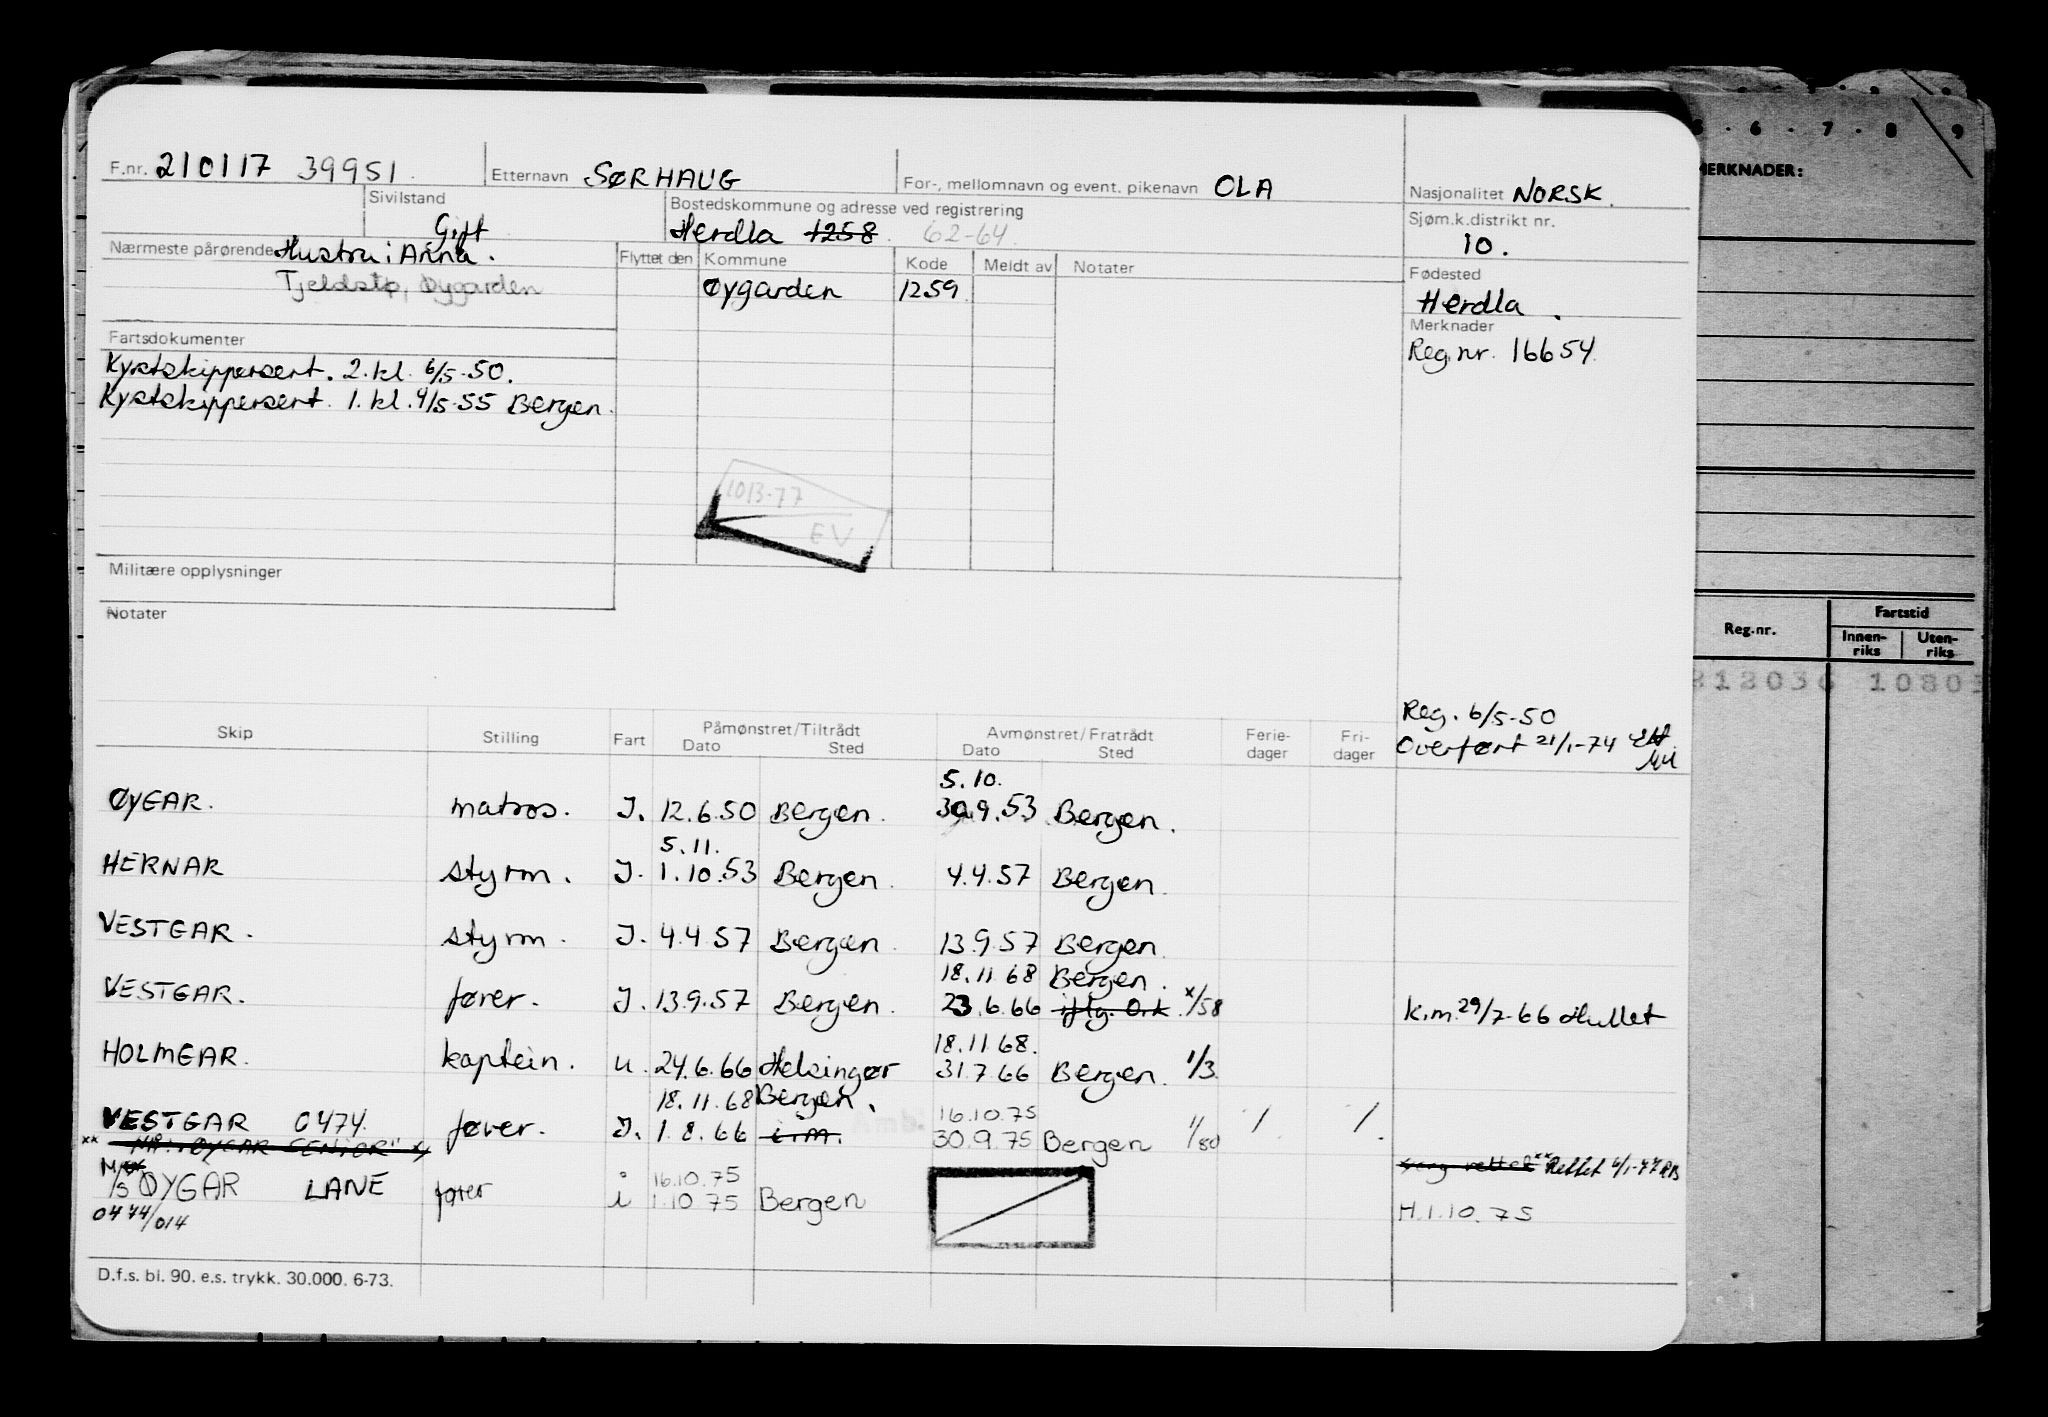 F.nr. 210117 39951. Etternavn SØRHAUG For-, mellomnavn og event. pikenavn OLA Nasjonalitet NORSK.
Sivilstand Gift Bostedskommune og adresse ved registrering Herdla 1258. 62-64. Sjøm.k.distrikt nr. 10.
Nærmeste pårørende Hustru: Anna.
Tjeldstø, Øygarden
Flyttet den Kommune Kode Meldt av Notater
Øygarden 1259
Fødested
Herdla.
Merknader
Reg.nr. 16654.
Fartsdokumenter
Kystskippersert. 2.kl. 6/5-50.
Kystskippersert. 1.kl. 4/5-55 Bergen.
1013-77
EV
Militære opplysninger
Notater
Reg. 6/5-50
Overført 21/1-74
Skip Stilling Fart Påmønstret/Tiltrådt Dato Sted Avmønstret/Fratrådt Dato Sted Ferie-dager Fri-dager
5.10.
ØYGAR. matros. I. 12.6.50 Bergen. 30.9.53 Bergen.
5.11.
HERNAR styrm. I. 1.10.53 Bergen. 4.4.57 Bergen.
VESTGAR. styrm. I. 4.4.57 Bergen. 13.9.57 Bergen.
18.11.68 Bergen.
VESTGAR. fører. I. 13.9.57 Bergen. 23.6.66 iflg. O.k. x/58 k.m. 29/7-66 Hullet
18.11.68.
HOLMGAR. kaptein. u. 24.6.66 Helsingør 31.7.66 Bergen. 1/3.
18.11.68 Bergen. 16.10.75
VESTGAR 0474. fører. I. 1.8.66 i.m. 30.9.75 Bergen 1/50 /. /.
xx NÅ: "ØYGAR SENIOR" xx Rettet 6/1-77 RB
16.10.75
M/S ØYGAR LANE fører i 1.10 75 Bergen H.1.10.75
0474/014
D.f.s. bl. 90. e.s. trykk. 30.000. 6-73.
5 . 6 . 7 . 8 9
MERKNADER:
Reg.nr. Fartstid
Innen-riks Uten-riks
212036 10801